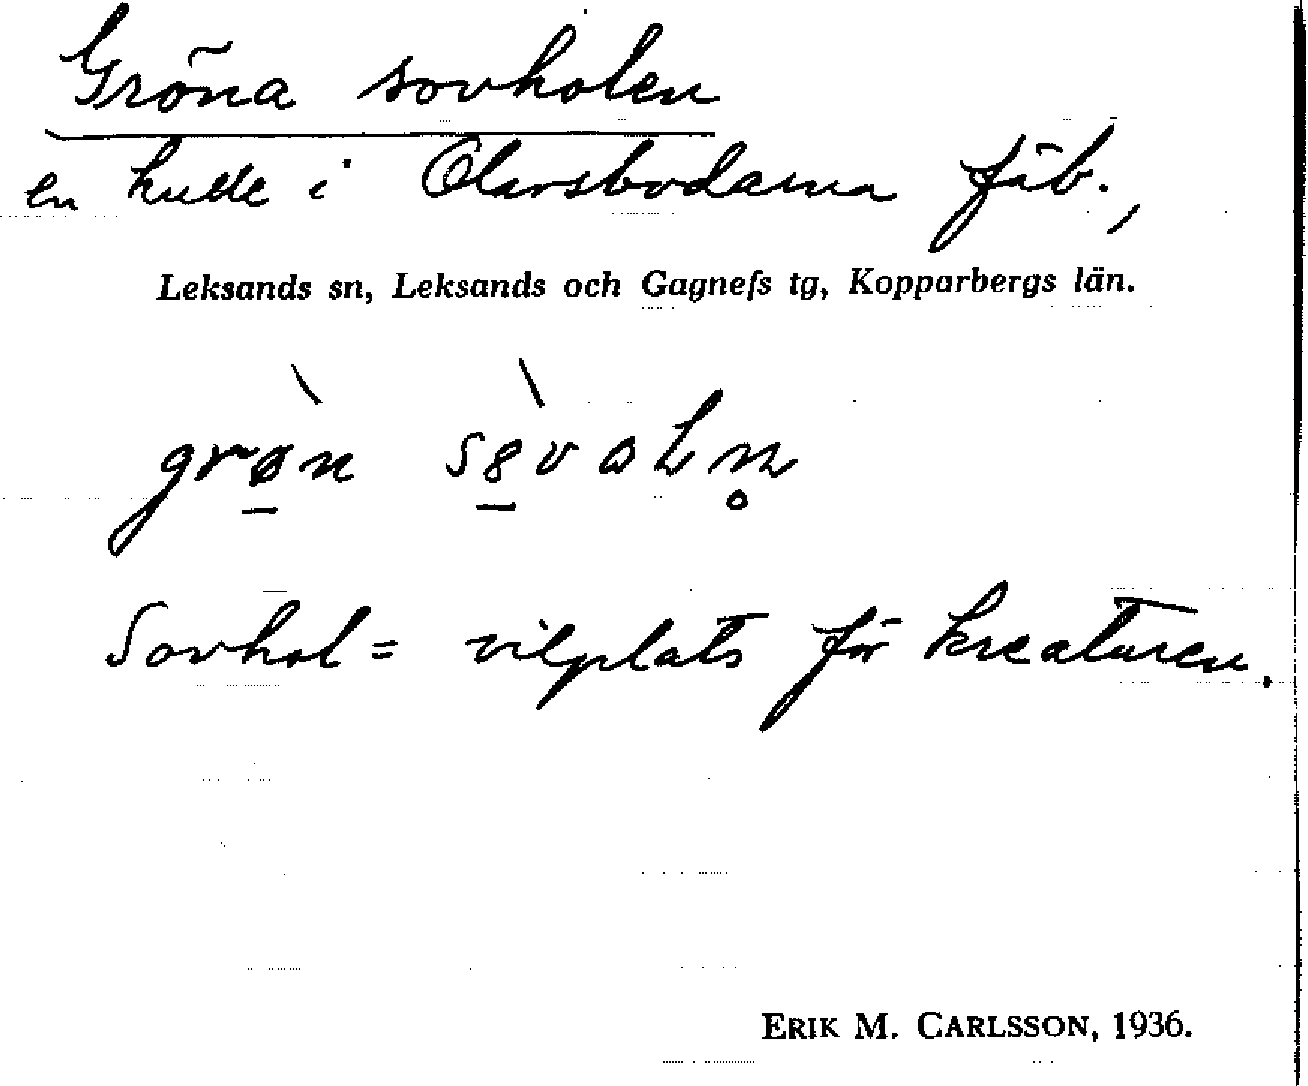 Gröna sovholen
en kulle i Olarsbodarna fäb.,
Leksands sn, Leksands och Gagnefs tg, Kopparbergs län.
Sovhol = vilplats för kreaturen.
ERIK M. CARLSSON, 1936.